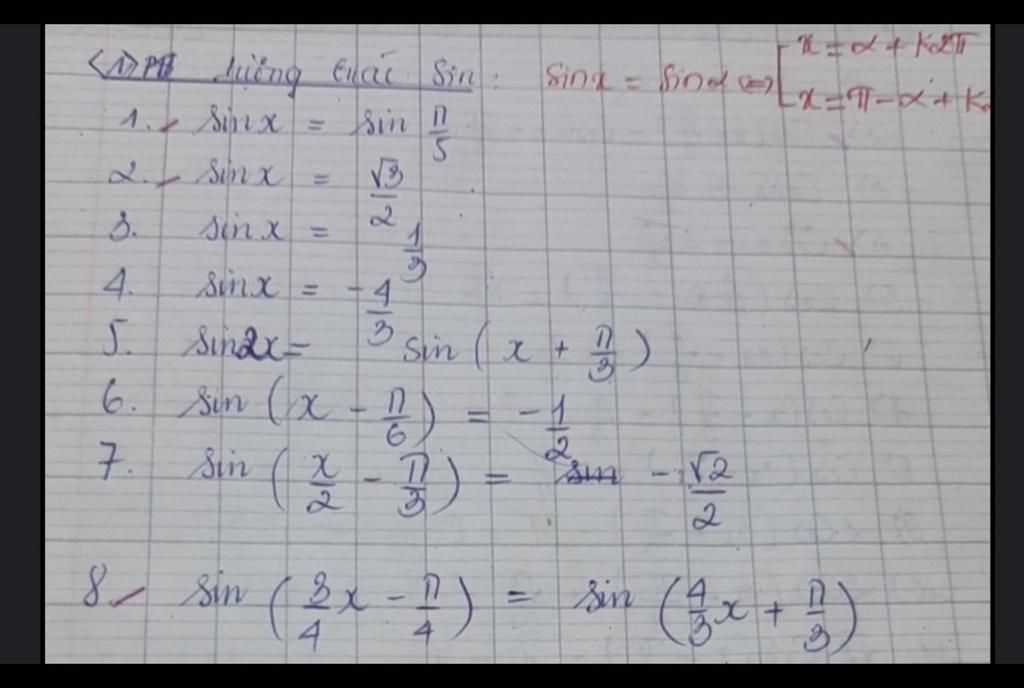 <1> PT lượng giác Sin: sinx = sinα ⇔ [ x = α + k2π
x = π - α + k
1. sinx = sin π/5
2. sinx = √3/2
3. sinx = 1/3
4. sinx = -4/3
5. sin2x = sin ( x + π/3 )
6. sin ( x - π/6 ) = -1/2
7. sin ( x/2 - π/3 ) = -√2/2
8. sin ( 3/4 x - π/4 ) = sin ( 4/3 x + π/3 )